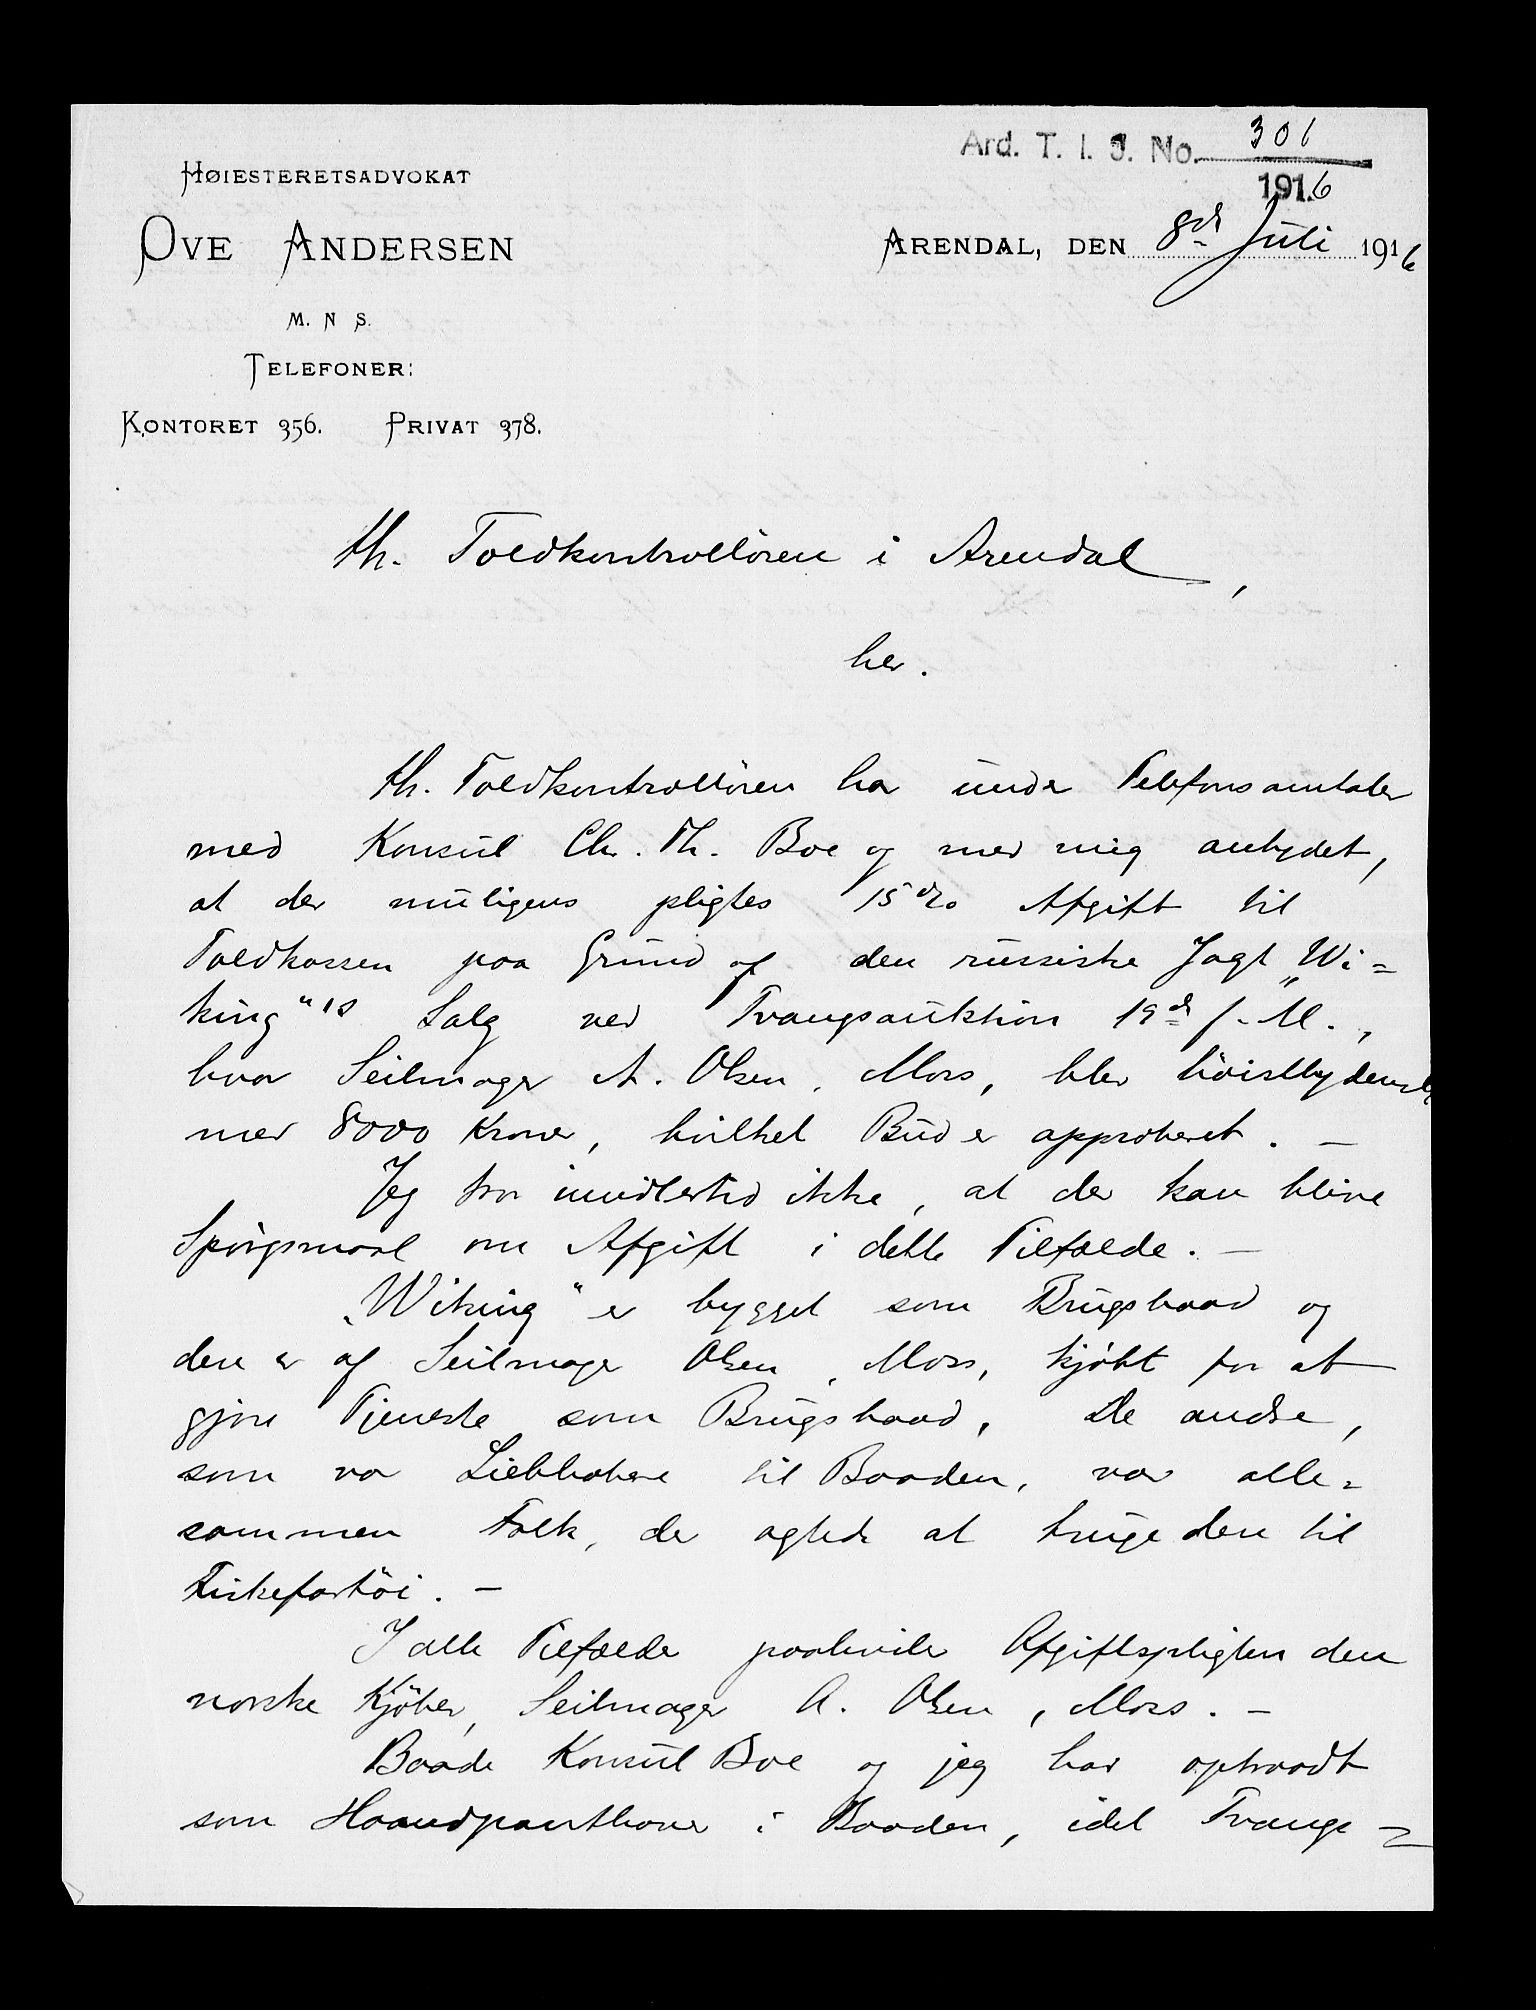 Ard. T. I. J. No. 301
1916
HØIESTERETSADVOKAT
OVE ANDERSEN
ARENDAL, DEN 8de Juli 1916
M. N. S.
TELEFONER:
KONTORET 356. PRIVAT 378.
Hr. Toldkontrolløren i Arendal,
her.
Hr. Toldkontrolløren har under Telefonsamtaler
med Konsul Chr. Th. Boe og med mig antydet,
at der muligens pligtes 15 % Afgift til
Toldkassen paa Grund af den russiske Jagt „Wi=
king"'s Salg ved Tvangsauktion 19de f. M.,
hvor Seilmager A. Olsen, Moss, blev höistbydende
med 8000 Kroner, hvilket Bud er approberet. –
Jeg tror imidlertid ikke, at der kan blive
Spörgsmaal om Afgift i dette Tilfælde. –
„Wiking" er bygget som Brugsbaad og
den er af Seilmager Olsen, Moss, kjøbt for at
gjøre Tjeneste som Brugsbaad. De andre,
som var Liebhabere til Baaden, var alle=
sammen Folk, der agtede at bruge den til
Fiskefartöi. –
I alle Tilfælde paahviler Afgiftspligten den
norske Kjöber, Seilmager A. Olsen, Moss. –
Baade Konsul Boe og jeg har optraadt
som Haandpanthaver i Baaden, idet Tvangs=